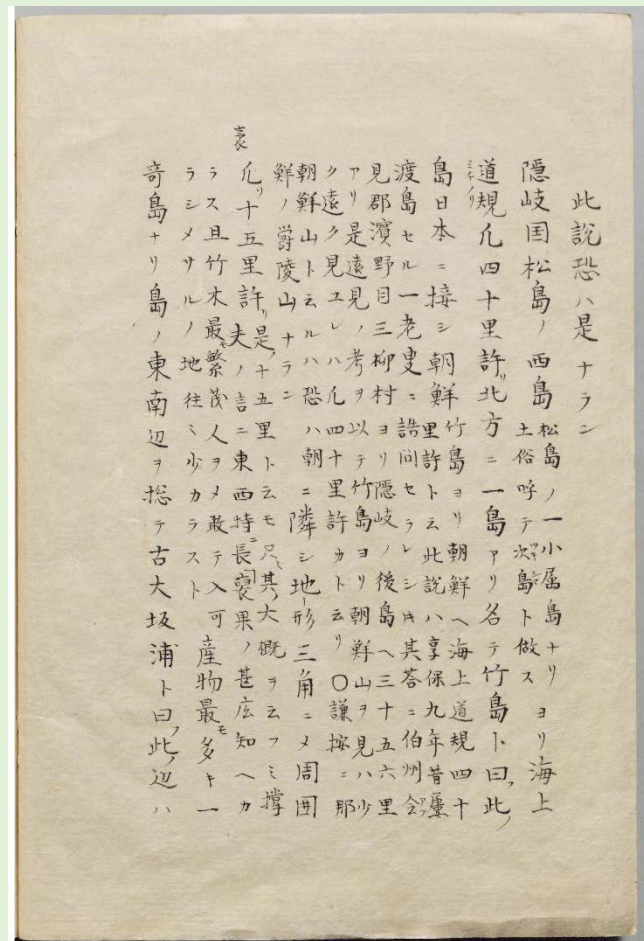 此説恐ハ是ナラン
隠岐国松島ノ西島
松島ノ一小属島ナリ
土俗呼テ次島ト做ス
ヨリ海上
道規凡四十里許北方ニ一島アリ名テ竹島ト曰此
島日本ニ接シ朝鮮
竹島ヨリ朝鮮ヘ海上道規四十
里許ト云此説ハ享保九年昔屢
渡島セル一老叟ニ詰問セラレシ其荅ニ伯州会
見郡濱野目三柳村ヨリ隠岐ノ後島ヘ三十五六里
アリ是遠見ノ考ヲ以テ竹島ヨリ朝鮮山ヲ見ハ少
ク遠ク見ユレハ凡四十里許カト云リ〇謙按ニ那
朝鮮山ト云ルハ恐ハ朝
鮮ノ陵山ナラン
ニ隣シ地形三角ニメ周囲
袤
凡十五里許
是十五里ト云モ只其大概ヲ云フミ撑
夫ノ言ニ東西特長果ノ甚広知ヘカ
ラス且竹木最繁茂人ヲメ敢テ入可
ラシメサルノ地往ミ少カラスト
産物最モ多キ一
奇島ナリ島ノ東南辺ヲ総テ古大坂浦ト曰此辺ハ